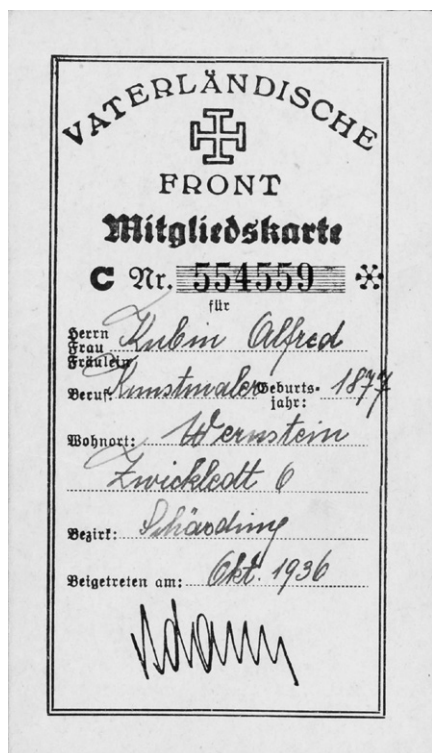 VATERLÄNDISCHE
FRONT
Mitgliedskarte
C Nr. 554559
für
Herrn
Frau Kubin Alfred
Fräulein
Beruf: Kunstmaler Geburts-
jahr: 1877
Wohnort: Wernstein
Zwickledt 6
Bezirk: Schärding
Beigetreten am: Okt. 1936